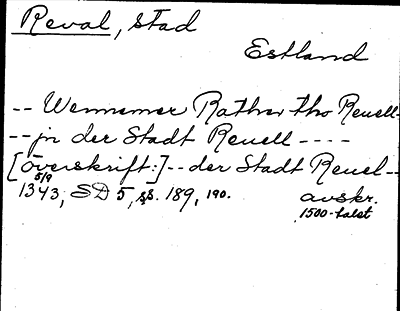 Reval, stad
Estland
-- Wennemer Rather tho Reuell-
-- jn der Stadt Reuell ----
[överskrift:] -- der Stadt Reuel --
5/9
1343, SD 5, ss. 189, 190. avskr.
1500-talet